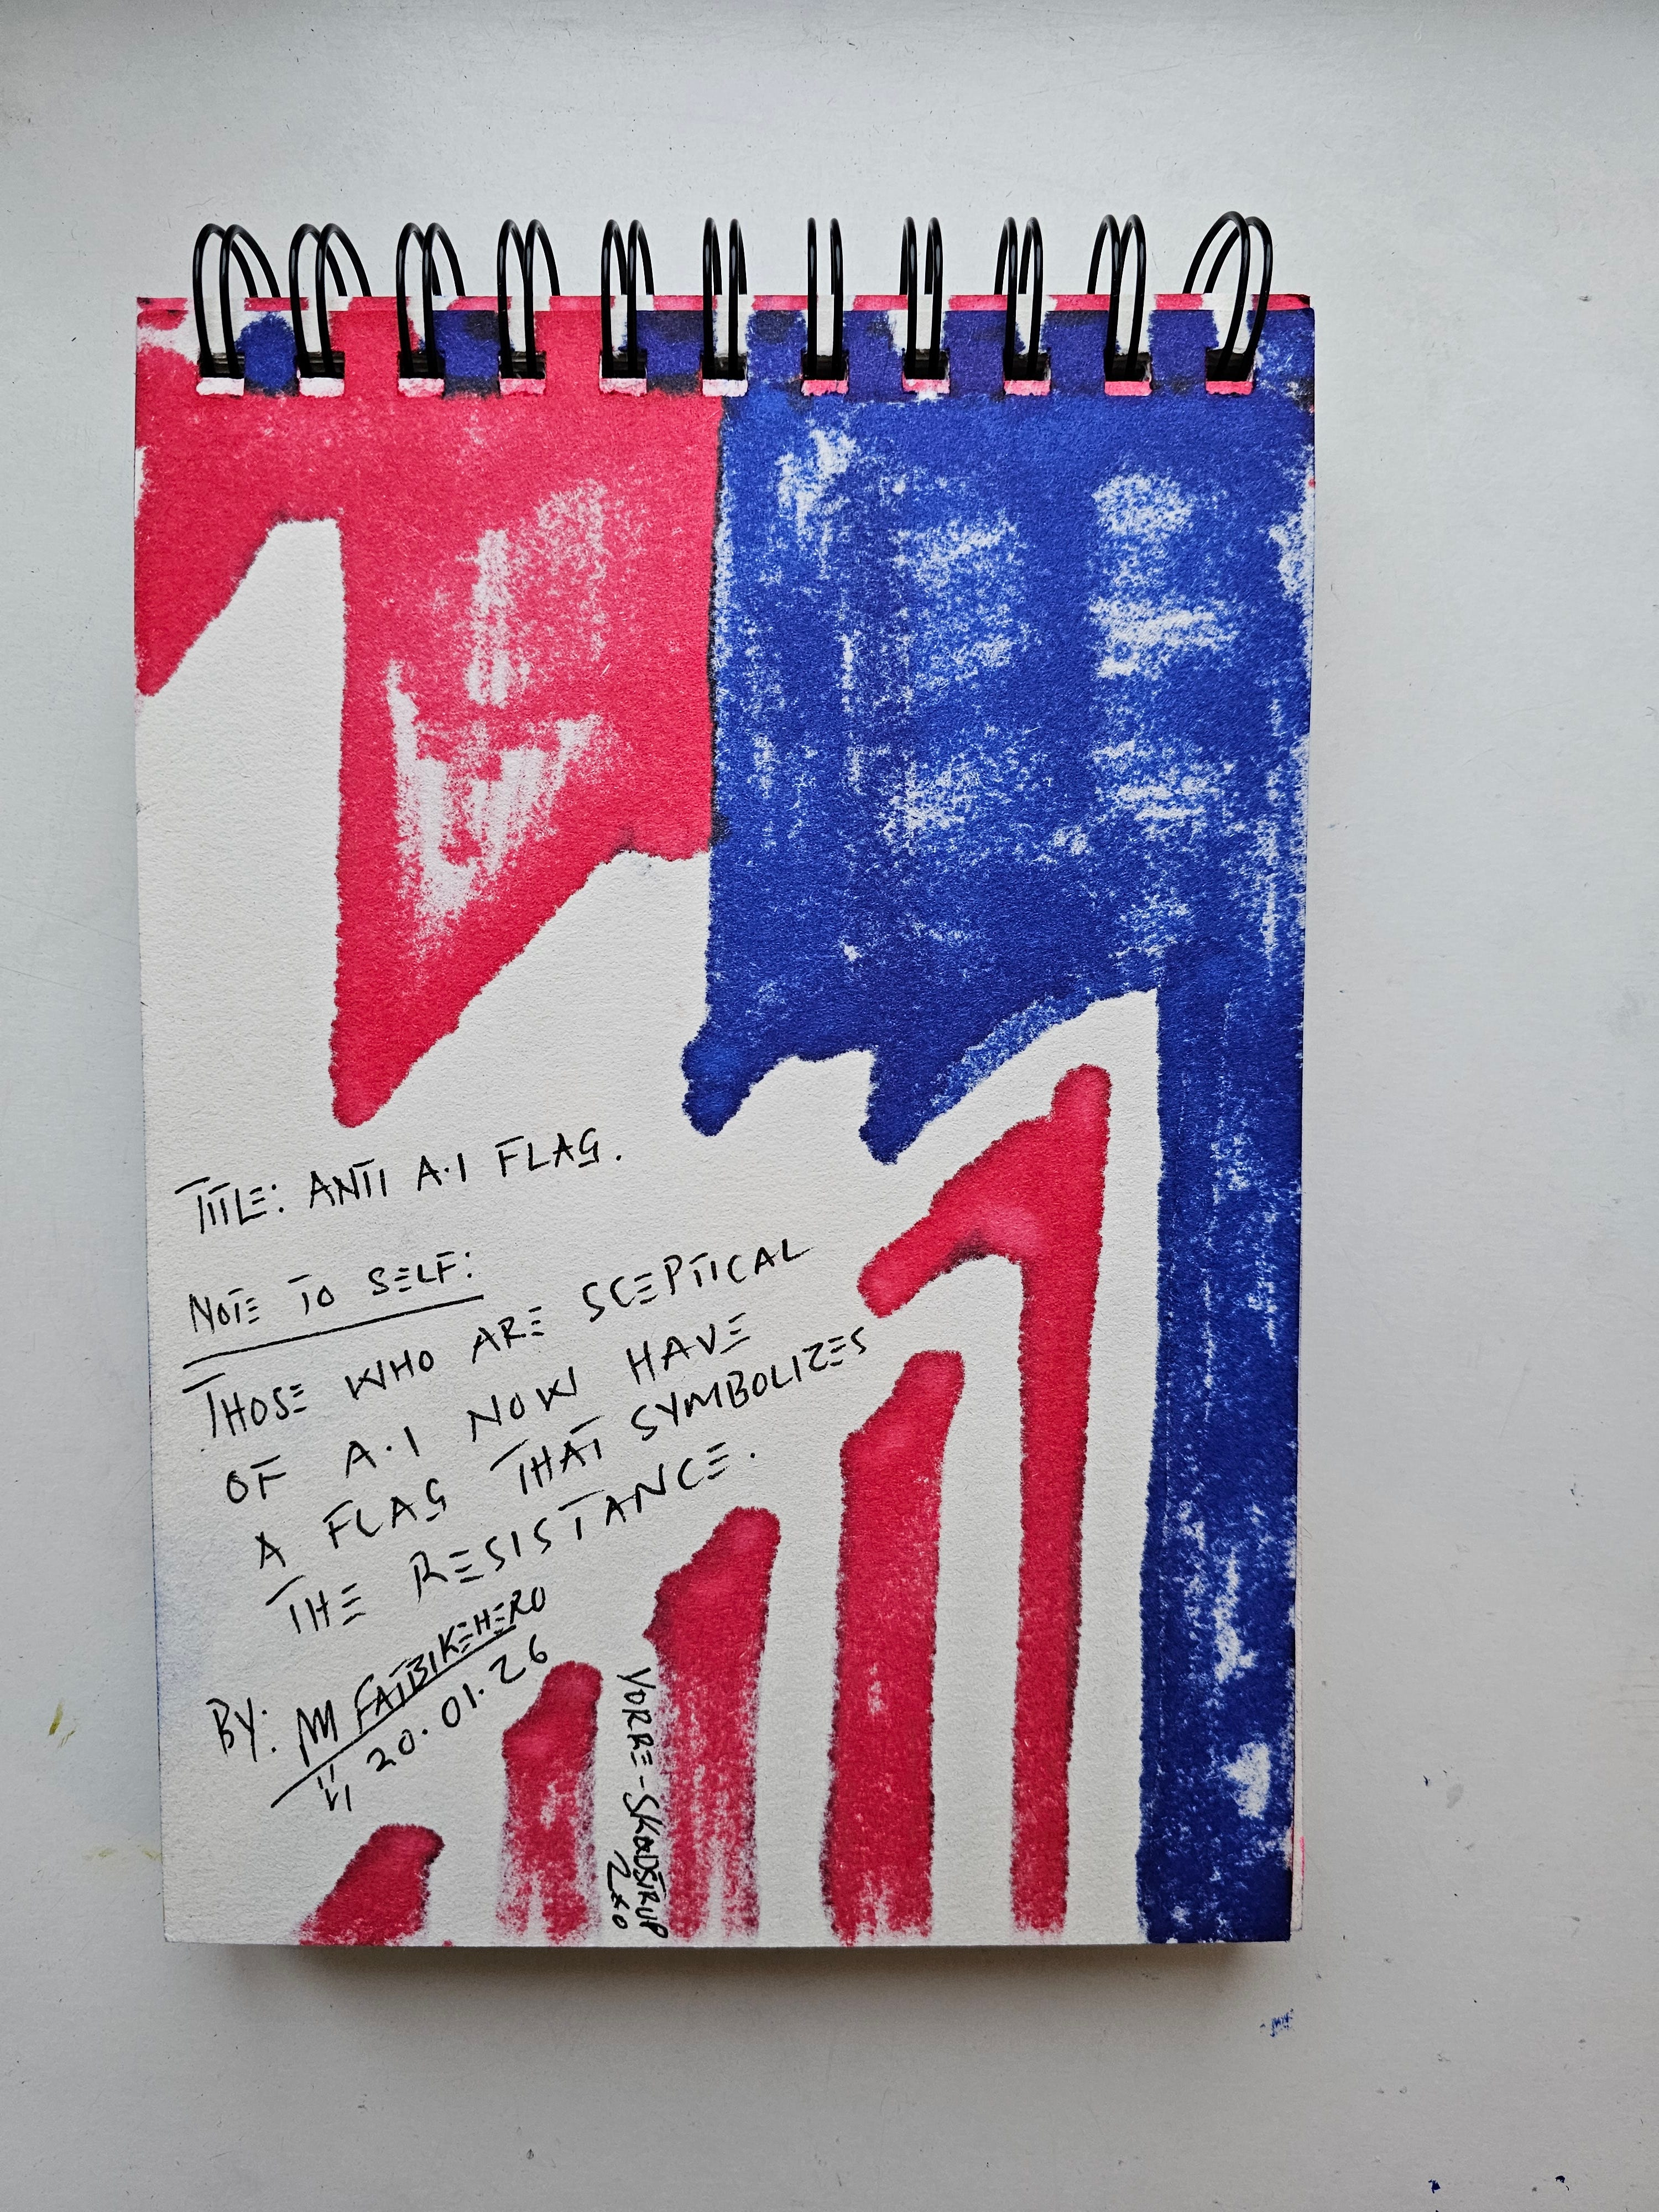 TITLE: ANTI A.I FLAG.
NOTE TO SELF:
THOSE WHO ARE SCEPTICAL
OF A.I NOW HAVE
A FLAG THAT SYMBOLIZES
THE RESISTANCE.
BY: FATBIKEHERO
20.01.26
YORRE-SKODSTRUP